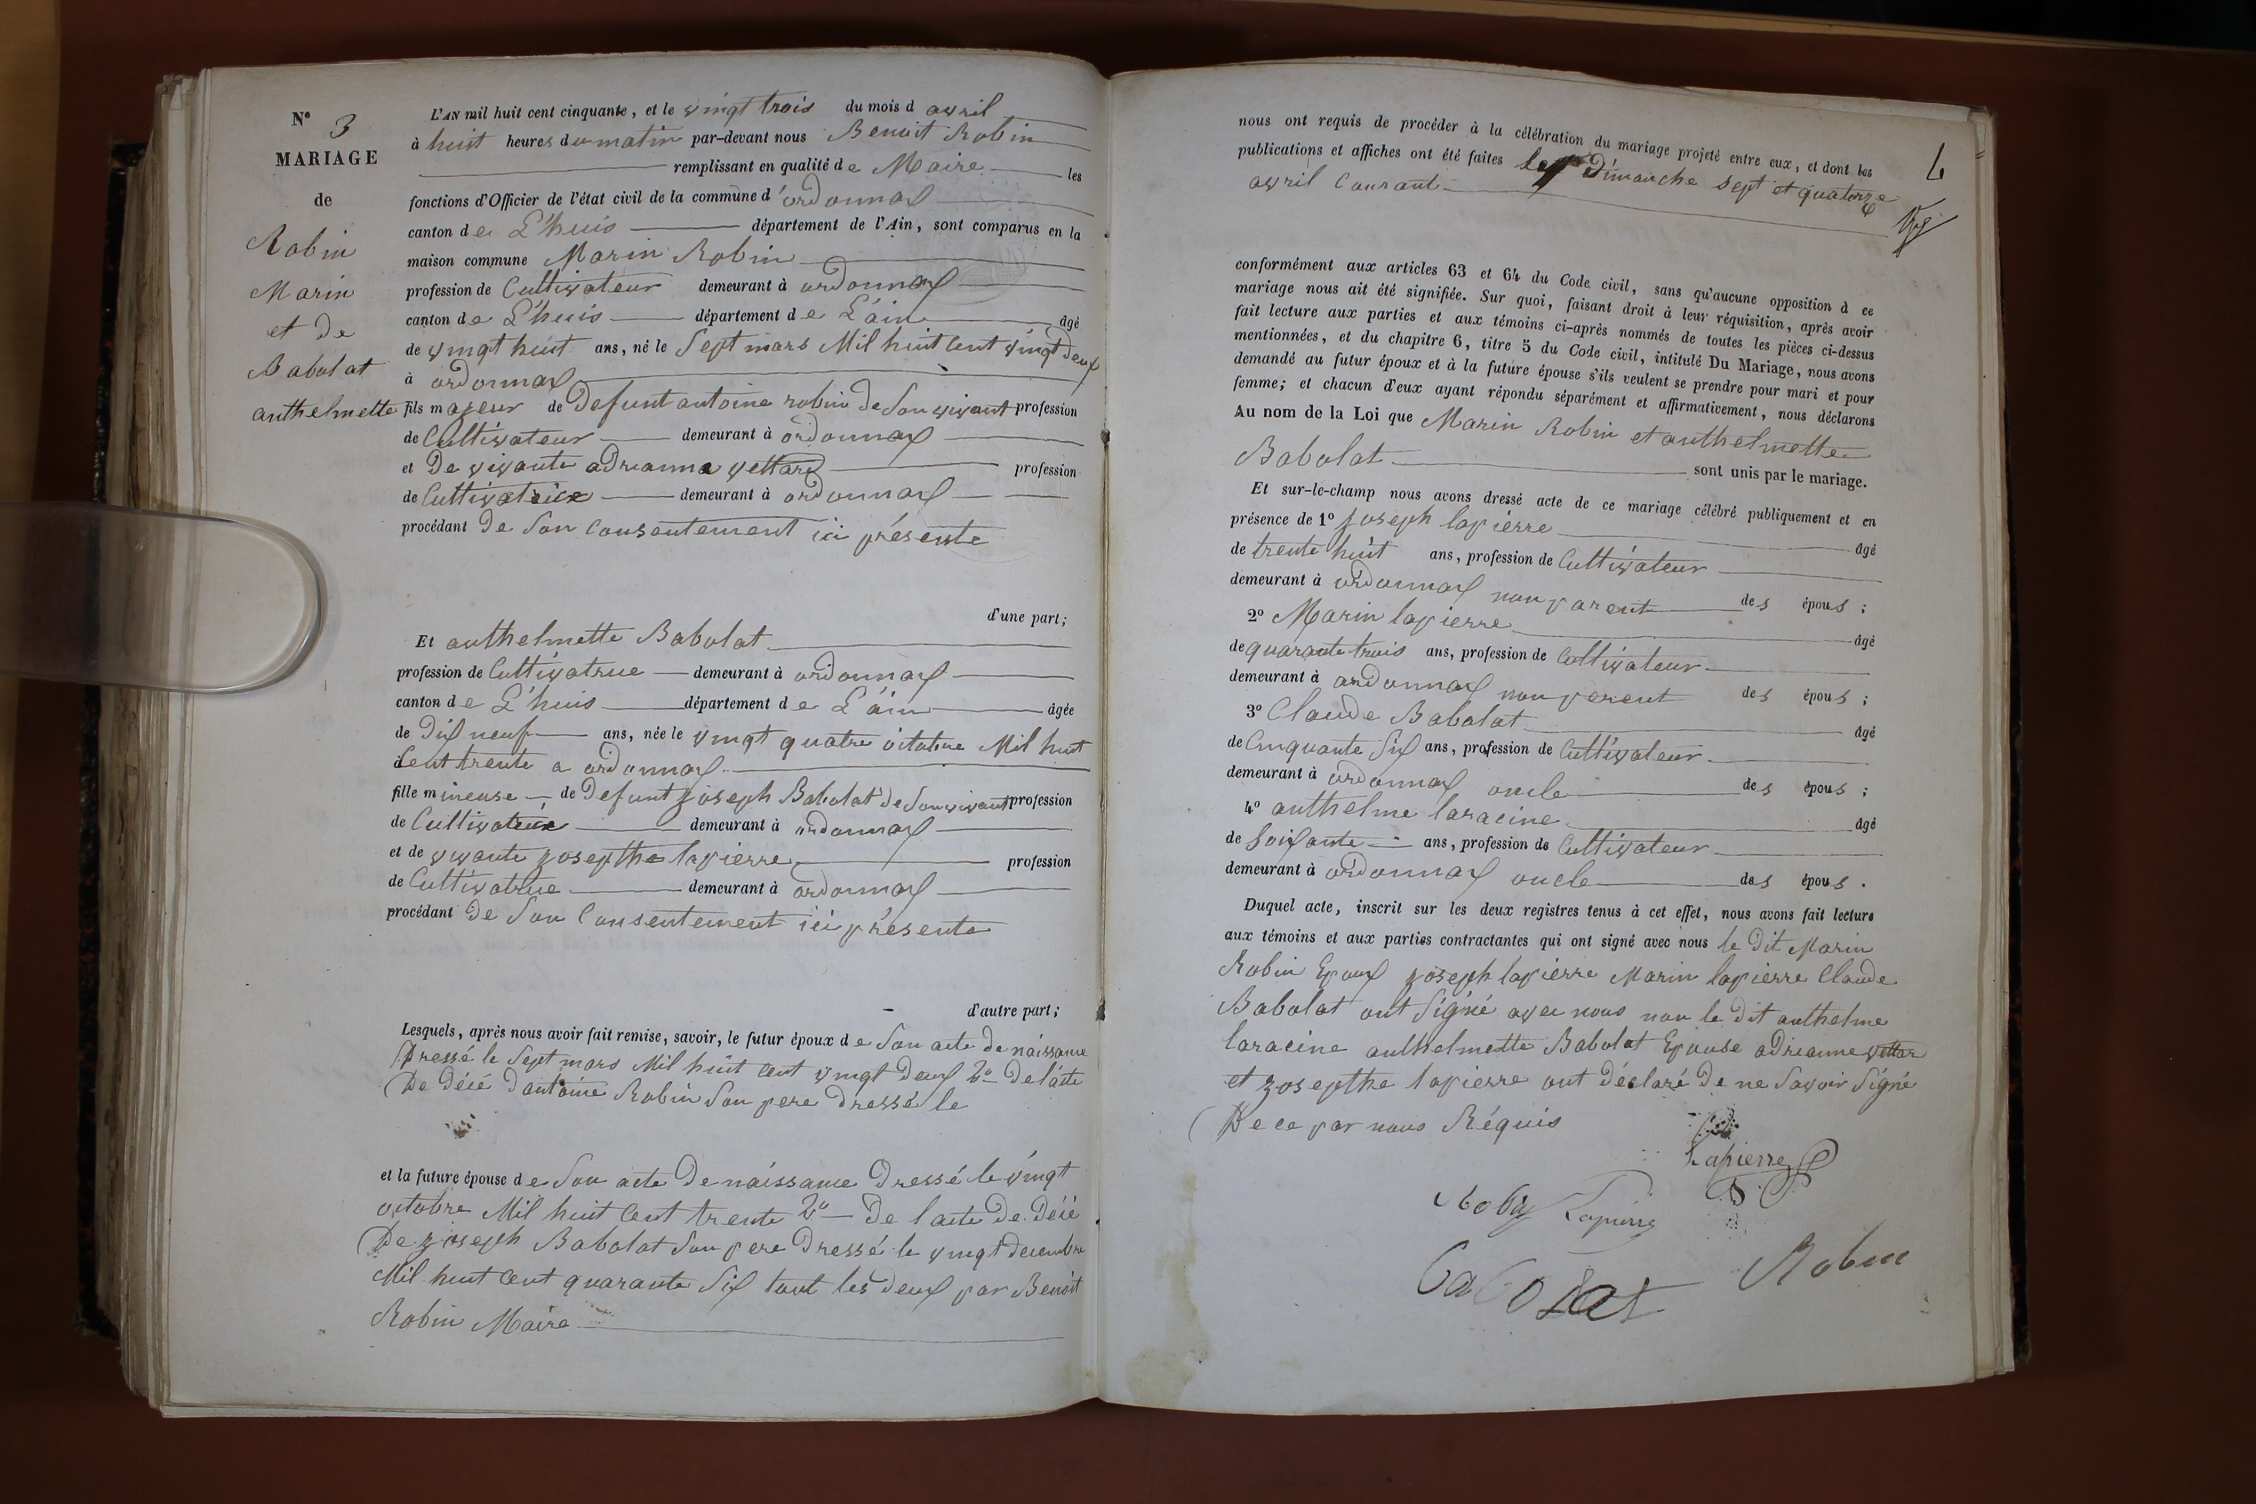 N° 3
MARIAGE
de
Robin
Marin
et de
Babolat
anthelmette
L'AN mil huit cent cinquante, et le vingt trois du mois d avril
à huit heures du matin par-devant nous Benoit Robin
remplissant en qualité de Maire les
fonctions d'Officier de l'état civil de la commune d'ordonnax
canton de L'huis département de l'Ain, sont comparus en la
maison commune Marin Robin
profession de Cultivateur demeurant à ordonnax
canton de L'huis département de L'ain âgé
de vingt huit ans, né le Sept mars Mil huit Cent vingt deux
à ordonnax
fils majeur de Defunt antoine robin de Son vivant profession
de Cultivateur demeurant à ordonnax
et De vivante adrianne vettard profession
de Cultivatrice demeurant à ordonnax
procédant De Son Consentement ici présente
d'une part;
Et anthelmette Babolat
profession de Cultivatrice demeurant à ordonnax
canton de L'huis département de L'ain âgée
de Dix neuf ans, née le vingt quatre octobre Mil huit
à Cent trente a ordonnax
fille mineuse de Defunt Joseph Babolat de Son vivant profession
de Cultivateur demeurant à ordonnax
et de vivante Josepthe lapierre profession
de Cultivatrice demeurant à ordonnax
procédant De Son Consentement ici présente
d'autre part;
Lesquels, après nous avoir fait remise, savoir, le futur époux de Son acte de naissance
Dressé le Sept mars Mil huit Cent vingt Deux 2° De l'acte
De Décé D'antoine Robin Son pere Dressé le
et la future épouse de Son acte De naissance Dressé le vingt
octobre Mil huit Cent trente 2° De l'acte De Décé
De Joseph Babolat Son pere Dressé le vingt decembre
Mil huit Cent quarante Six tout les deux par Benoit
Robin Maire
6
nous ont requis de procéder à la célébration du mariage projeté entre eux, et dont les
publications et affiches ont été faites les Dimanche Sept et quatorze
avril Courant
conformément aux articles 63 et 64 du Code civil, sans qu'aucune opposition à ce
mariage nous ait été signifiée. Sur quoi, faisant droit à leur réquisition, après avoir
fait lecture aux parties et aux témoins ci-après nommés de toutes les pièces ci-dessus
mentionnées, et du chapitre 6, titre 5 du Code civil, intitulé Du Mariage, nous avons
demandé au futur époux et à la future épouse s'ils veulent se prendre pour mari et pour
femme; et chacun d'eux ayant répondu séparément et affirmativement, nous déclarons
Au nom de la Loi que Marin Robin et anthelmette
Babolat sont unis par le mariage.
Et sur-le-champ nous avons dressé acte de ce mariage célébré publiquement et en
présence de 1° Joseph lapierre âgé
de trente huit ans, profession de Cultivateur
demeurant à ordonnax non parent des épous;
2° Marin lapierre âgé
de quarante trois ans, profession de Cultivateur
demeurant à ordonnax non perent des épous;
3° Claude Babolat âgé
de Cinquante Six ans, profession de Cultivateur
demeurant à ordonnax oncle des épous;
4° anthelme laracine âgé
de Soixante ans, profession de Cultivateur
demeurant à ordonnax oncle des épous.
Duquel acte, inscrit sur les deux registres tenus à cet effet, nous avons fait lecture
aux témoins et aux parties contractantes qui ont signé avec nous le Dit Marin
Robin Epoux Joseph lapierre Marin lapierre Claude
Babolat ont Signé avec nous non le Dit anthelme
laracine anthelmette Babolat Epouse adrianne vettar
et Josepthe lapierre ont Déclaré De ne Savoir Signé
De ce par nous Réquis
Lapierre
Robin Lapierre
Babolat Robin